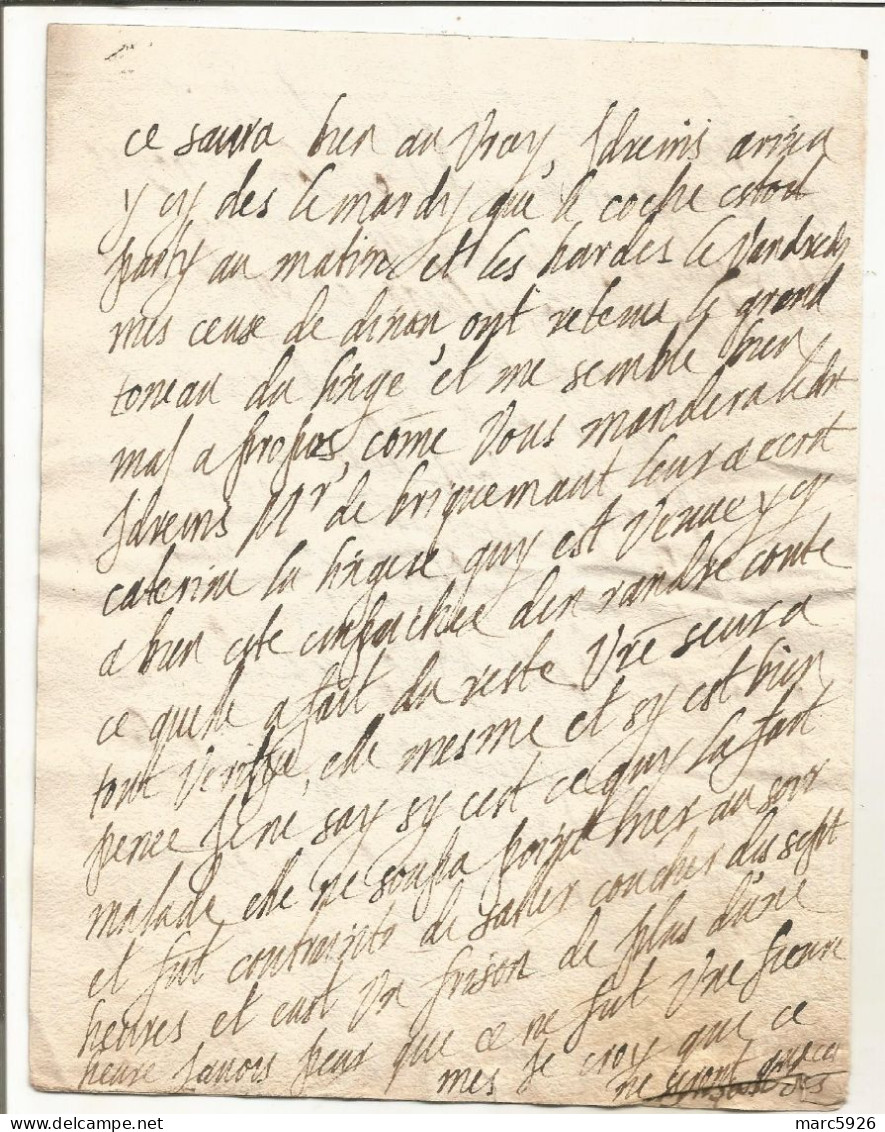 ce saura bien au vray, Idreins ariva
y cy des le mardy que le coche estoit
party au matin et les hardes le Vendredy
mes ceuse de dinan, ont retenu le grand
toneau du linge et me semble bien
mal a propos, come Vous mandera ledit
Idreins Mr de briquemaut leur a ecrit
caterine la lingere quy est Venue y cy
a bien este enpaichee den randre conte
ce quelle a fait du reste Vre seur a
tout Veritfie, elle mesme et sy est bien
penee Je ne say sy cest ce quy la fait
malade elle ne soupa point hier au soir
et fut contrainte de saller coucher des sept
heures et eust Un frison de plus dune
heure Javois peur que ce ne fut Une fieure
mes Je croy que ce
ne